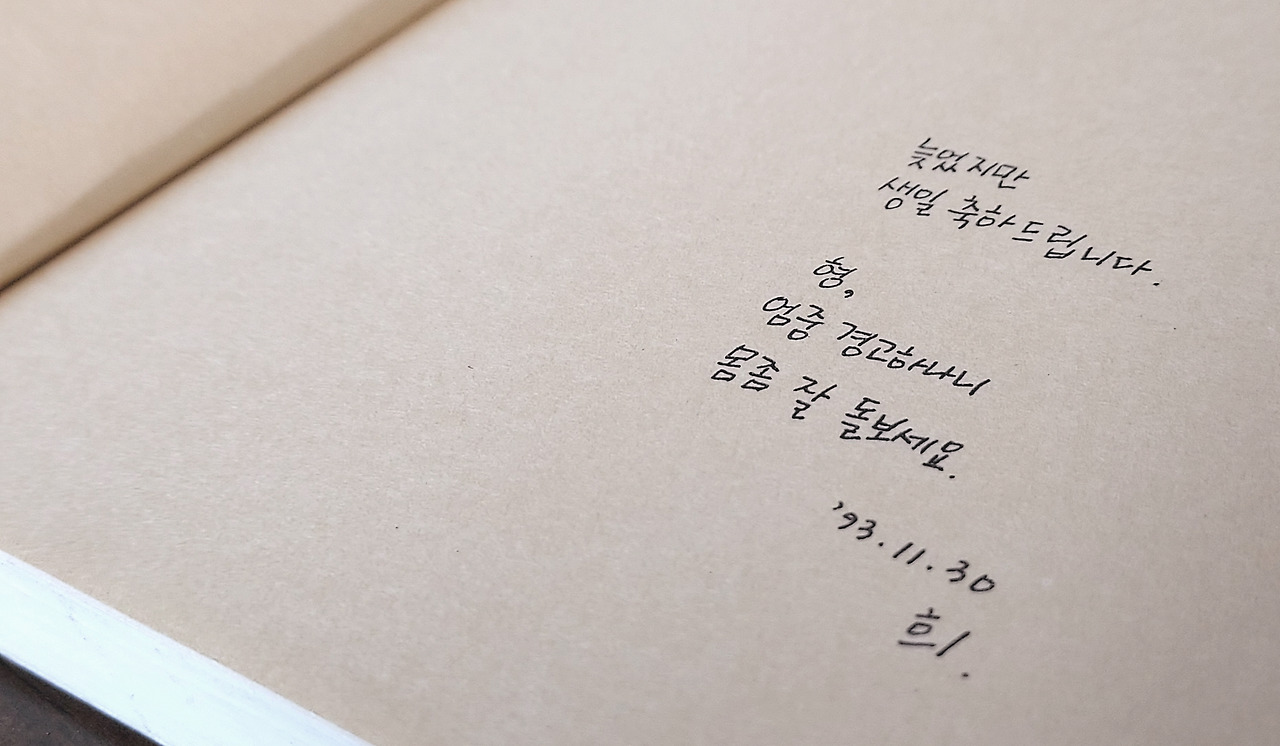 늦었지만
생일 축하 드립니다.
형,
엄중 경고하나니
몸좀 잘 돌보세요.
'93.11.30
희.